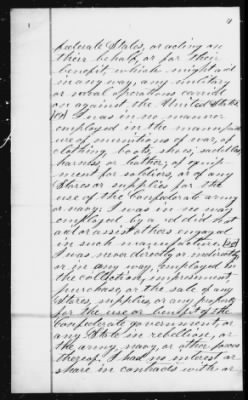 4
federate States, or acting on
their behalf, or for their
benefit, which might aid
in any way, any military
or naval operations carried
on against the United States.
I was in no manner
employed in the manufact
ure of munitions of war, of
clothing, boots, shoes, saddles
harness, or leather, of equip-
ment for soldiers, or of any
Stores or supplies for the
use of the Confederate army
or navy. I was in no way
employed by nor did I
aid or assist others engaged
in such manufacture.
I was never directly or indirectly
or in any way, employed in
the collection, impressment
purchase, or the sale of any
Stores, supplies, or any property
for the use or benefit of the
Confederate government, or
any State in rebellion, or
the army, navy, or other forces
thereof. I had no interest or
share in contracts with or